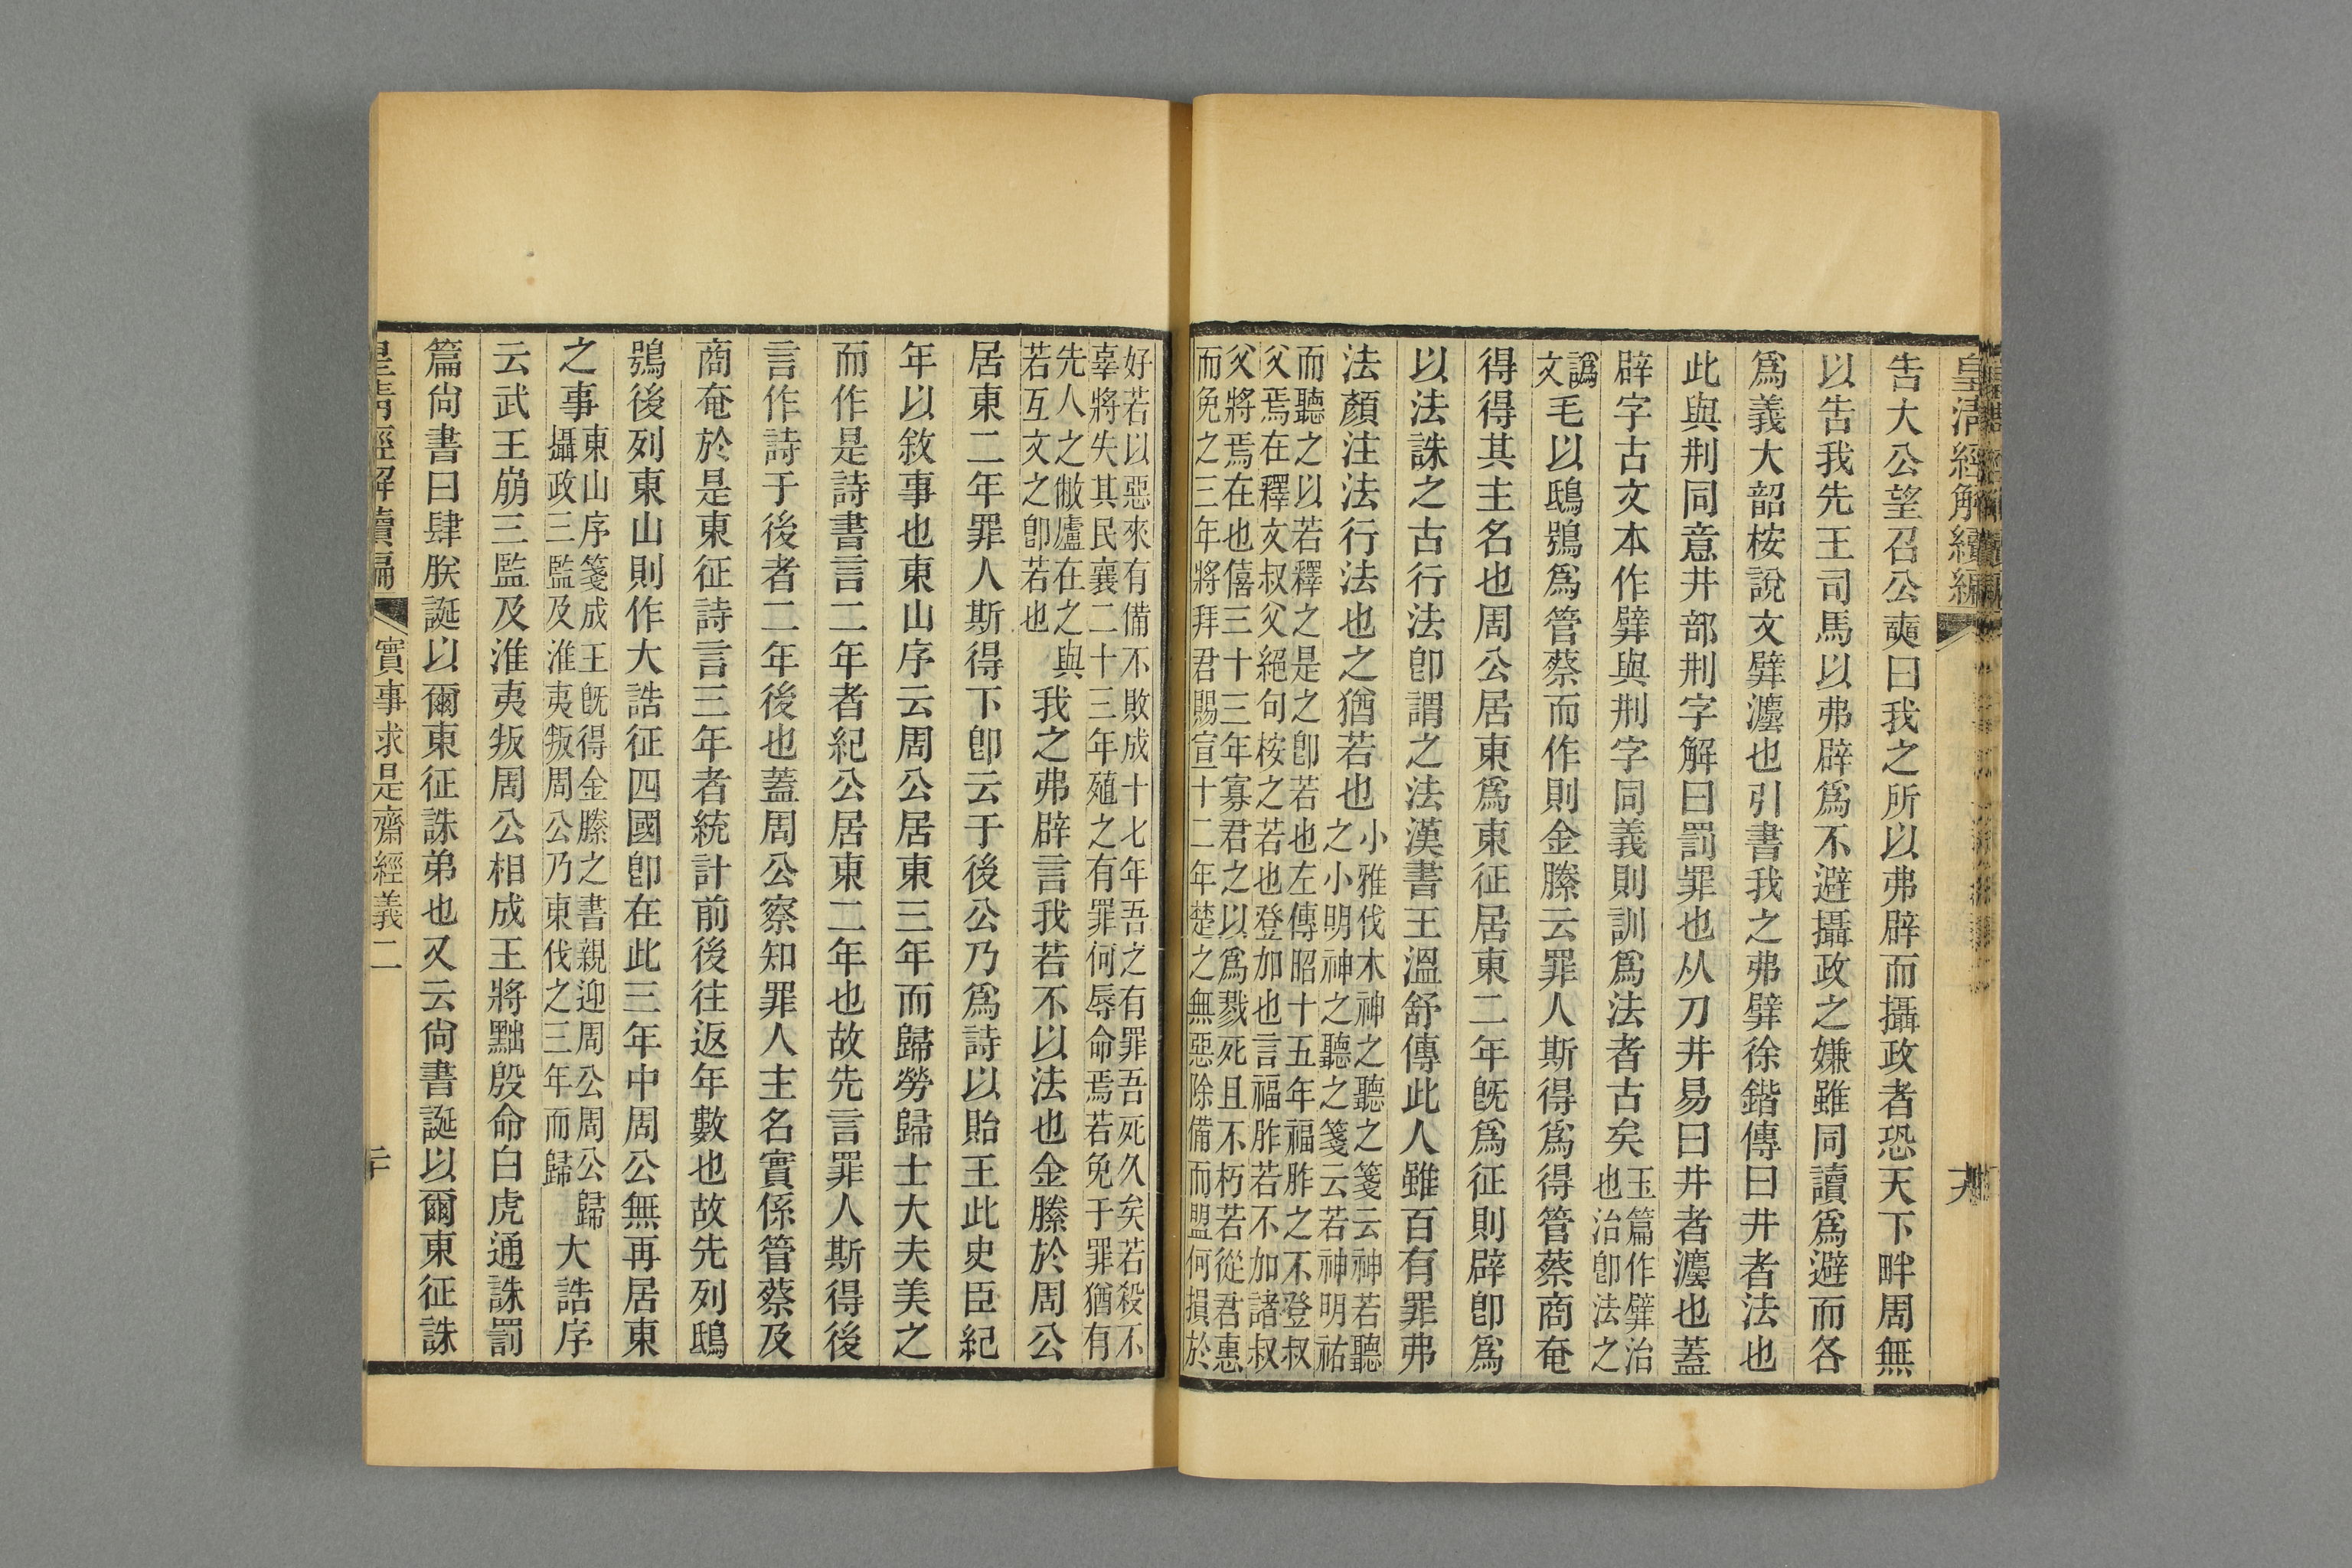 皇清經解續編
告大公望召公奭曰我之所以弗辟而攝政者恐天下畔周無
以告我先王司馬以弗辟爲不避攝政之嫌雖同讀爲避而各
爲義大韶桉說文𨐨灋也引書我之弗𨐨徐鍇傳曰井者法也
此與荆同意井部荆字解曰罰罪也从刀井易曰井者灋也蓋
辟字古文本作𨐨與荆字同義則訓爲法者古矣玉篇作𨐨治
也治卽法之
譌
文毛以鴟鴞爲管蔡而作則金縢云罪人斯得爲得管蔡商奄
得得其主名也周公居東爲東征居東二年旣爲征則辟卽爲
以法誅之古行法卽謂之法漢書王溫舒傳此人雖百有罪弗
法顏注法行法也之猶若也小雅伐木神之聽之箋云神若聽
之小明神之聽之箋云若神明祐
而聽之以若釋之是之卽若也左傳昭十五年福胙之不登叔
父焉在釋文叔父絕句桉之若也登加也言福胙若不加諸叔
父將焉在也僖三十三年寡君之以爲戮死且不朽若從君惠
而免之三年將拜君賜宣十二年楚之無惡除備而盟何損於
好若以惡來有備不敗成十七年吾之有罪吾死久矣若殺不
辜將失其民襄二十三年殖之有罪何辱命焉若免于罪猶有
先人之敝廬在之與
若互文之卽若也
我之弗辟言我若不以法也金縢於周公
居東二年罪人斯得下卽云于後公乃爲詩以貽王此史臣紀
年以敘事也東山序云周公居東三年而歸勞歸士大夫美之
而作是詩書言二年者紀公居東二年也故先言罪人斯得後
言作詩于後者二年後也蓋周公察知罪人主名實係管蔡及
商奄於是東征詩言三年者統計前後往返年數也故先列鴟
鴞後列東山則作大誥征四國卽在此三年中周公無再居東
之事東山序箋成王旣得金縢之書親迎周公周公歸
攝政三監及淮夷叛周公乃東伐之三年而歸
大誥序
云武王崩三監及淮夷叛周公相成王將黜殷命白虎通誅罰
篇尙書曰肆朕誕以爾東征誅弟也又云尙書誕以爾東征誅
皇清經解續編 實事求是齋經義二